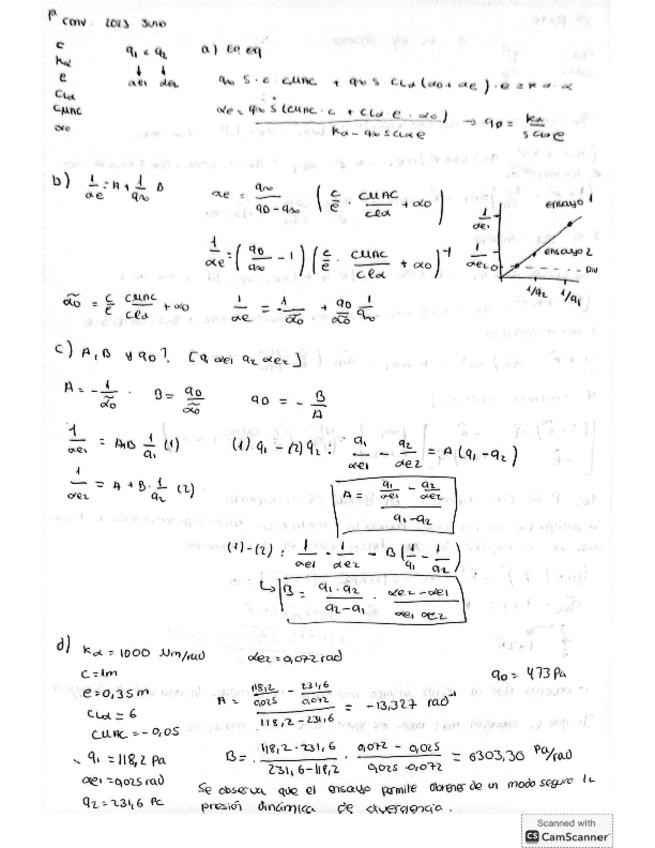 1ª conv. 2023 Junio
c
kα
e
CLα
CMAC
α0
q1 < q2
↓ ↓
αe1 αe2
a) Ec. eq
q∞ S · c · CMAC + q∞ S CLα (α0 + αe) · e = kα · α
αe = q∞ S (CMAC · c + CLα · e · α0) / (kα - q∞ S CLα e) → qD = kα / (S CLα e)
b) 1/αe = A + 1/q∞ B
αe = q∞ / (qD - q∞) ( c/e · CMAC/CLα + α0 )
1/αe = ( qD/q∞ - 1 ) ( c/e · CMAC/CLα + α0 )^-1
1/αe1
1/αe2
ensayo 1
ensayo 2
DIV
1/q2 1/q1
α̃0 = c/e CMAC/CLα + α0
1/αe = - 1/α̃0 + qD/α̃0 1/q∞
c) A, B y qD? [q1 αe1 q2 αe2]
A = - 1/α̃0 · B = qD/α̃0 qD = - B/A
1/αe1 = A+B 1/q1 (1)
(1) q1 - (2) q2 : q1/αe1 - q2/αe2 = A (q1 - q2)
1/αe2 = A + B · 1/q2 (2)
A = (q1/αe1 - q2/αe2) / (q1 - q2)
(1) - (2) : 1/αe1 - 1/αe2 = B ( 1/q1 - 1/q2 )
↳ B = q1 · q2 / (q2 - q1) · (αe2 - αe1) / (αe1 αe2)
d) kα = 1000 Nm/rad
αe2 = 0,072 rad
c = 1m
e = 0,35 m
CLα = 6
CMAC = -0,05
q1 = 118,2 Pa
αe1 = 0,025 rad
q2 = 231,6 Pa
qD = 473 Pa
A = (118,2/0,025 - 231,6/0,072) / (118,2 - 231,6) = -13,327 rad^-1
B = 118,2 · 231,6 / (231,6 - 118,2) · (0,072 - 0,025) / (0,025 · 0,072) = 6303,30 Pa/rad
Se observa que el ensayo permite obtener de un modo seguro la
presión dinámica de divergencia.
Scanned with
CS CamScanner